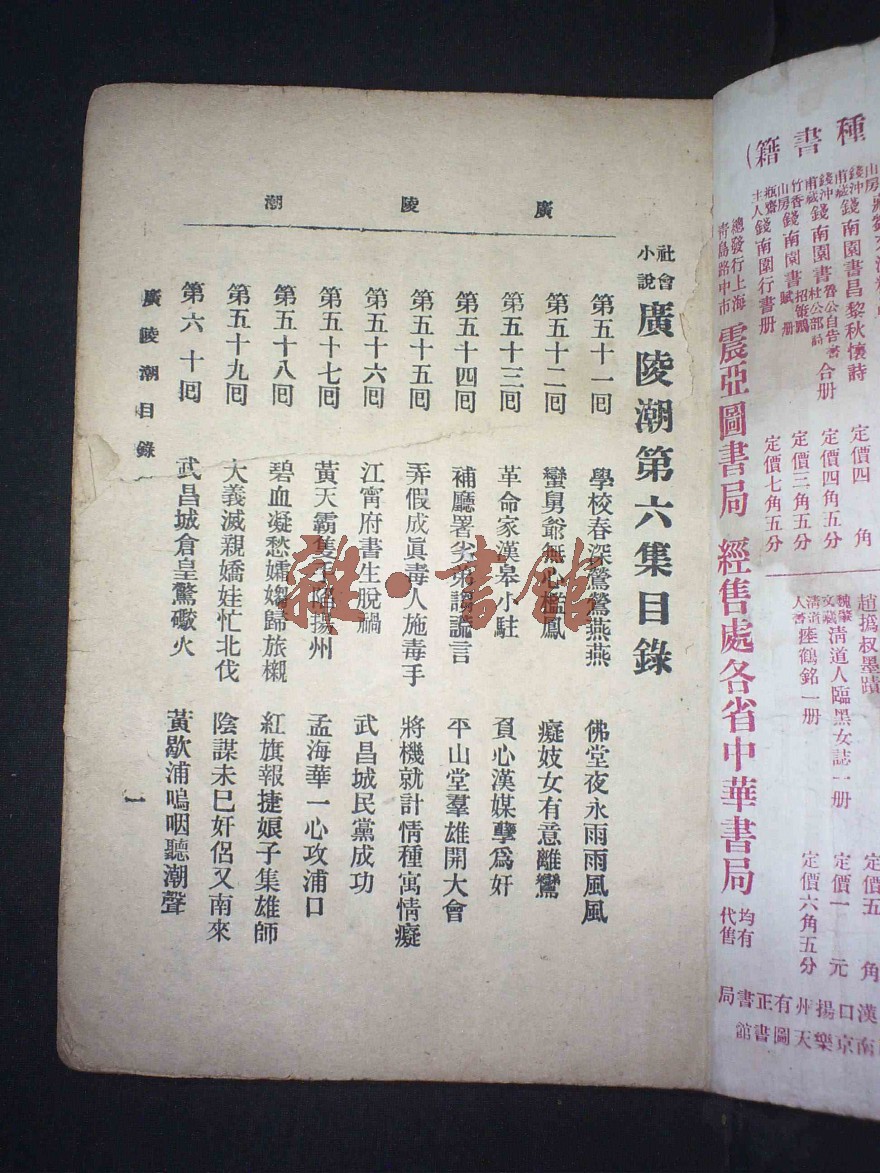 廣陵潮
社會小說 廣陵潮第六集目錄
第五十一回 學校春深鶯鶯燕燕 佛堂夜永雨雨風風
第五十二回 蠻舅爺無心檻鳳 癡妓女有意離鸞
第五十三回 革命家漢皋小駐 負心漢媒孽爲奸
第五十四回 補廳署劣弟謁謊言 平山堂羣雄開大會
第五十五回 弄假成眞毒人施毒手 將機就計情種寓情癡
第五十六回 江甯府書生脫禍 武昌城民黨成功
第五十七回 黃天霸隻手陷揚州 孟海華一心攻浦口
第五十八回 碧血凝愁孀婦歸旅櫬 紅旗報捷娘子集雄師
第五十九回 大義滅親嬌娃忙北伐 陰謀未已奸侶又南來
第六十回 武昌城倉皇驚礮火 黃歇浦嗚咽聽潮聲
廣陵潮目錄
一
雜·書館
種書籍）
錢南園書昌黎秋懷詩 定價四角
錢南園書 合册 定價四角五分
錢南園書 招隱賦册 定價三角五分
錢南園行書册 定價七角五分
趙撝叔墨蹟 定價五角
清道人臨黑女誌一册 定價一元
瘞鶴銘一册 定價六角五分
總發行上海青島路中市 震亞圖書局 經售處各省中華書局 均有代售
漢口揚州有正書局
南京樂天圖書館